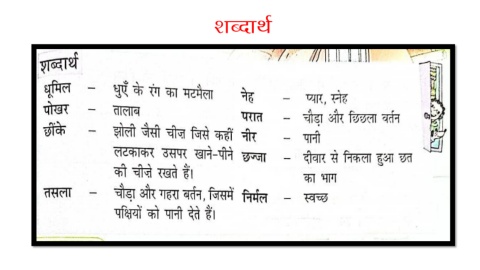 शब्दार्थ
शब्दार्थ
धूमिल – धुएँ के रंग का मटमैला
पोखर – तालाब
छींके – झोली जैसी चीज़ जिसे कहीं
लटकाकर उसपर खाने-पीने
की चीजे रखते हैं।
तसला – चौड़ा और गहरा बर्तन, जिसमें
पक्षियों को पानी देते हैं।
नेह – प्यार, स्नेह
परात – चौड़ा और छिछला बर्तन
नीर – पानी
छज्जा – दीवार से निकला हुआ छत
का भाग
निर्मल – स्वच्छ